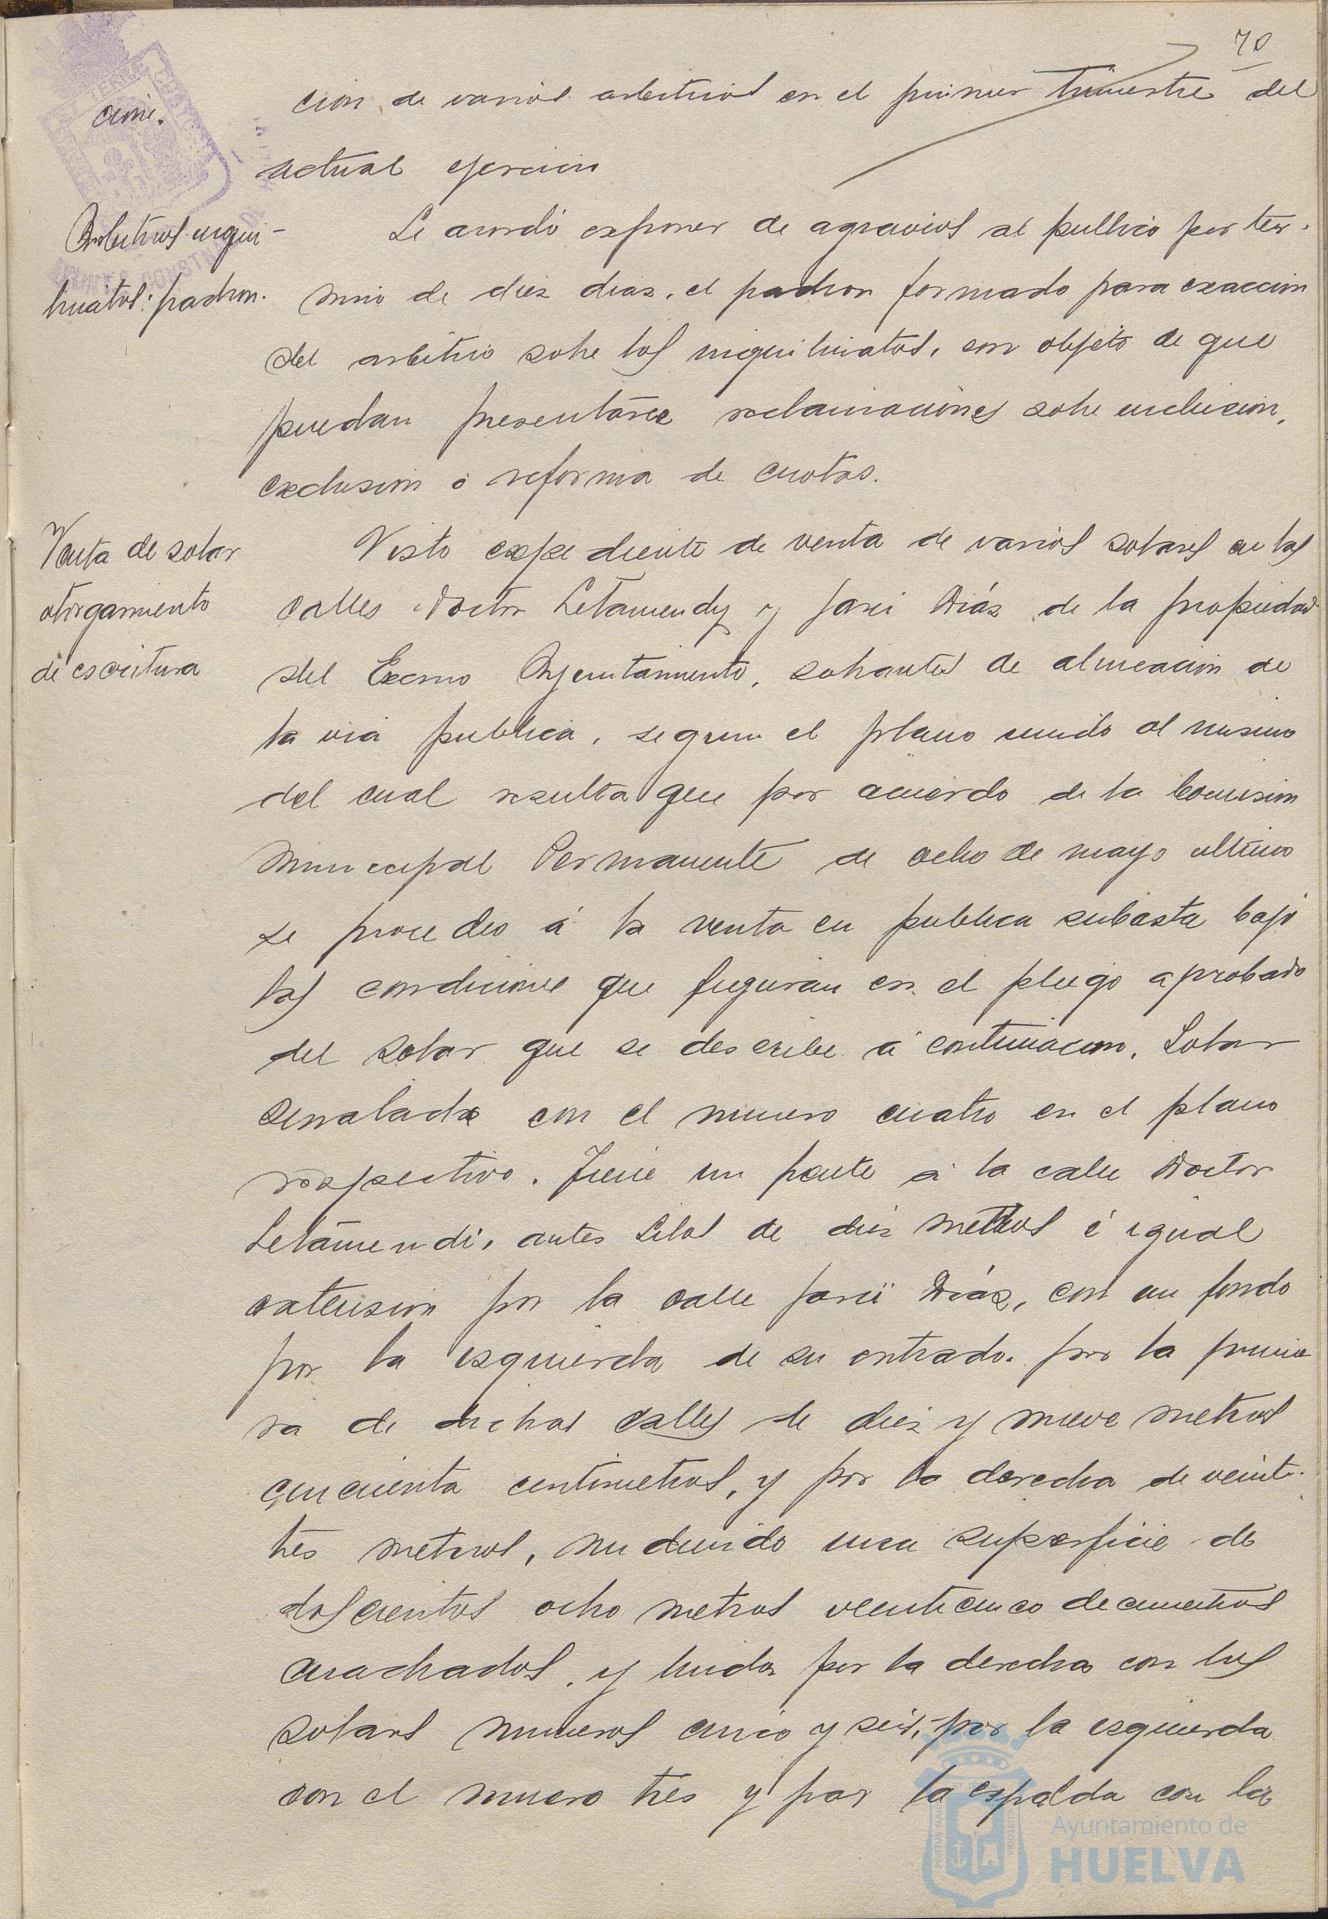 70
cion de varios arbitrios en el primer trimestre del
cioni.
actual ejercicio
Arbitrios inqui-
linatos: padron.
Se acordó exponer de agravios al publico por ter-
mino de diez dias, el padron formado para exaccion
del arbitrio sobre los inquilinatos, con objeto de que
puedan presentarse reclamaciones sobre inclusion,
exclusion ó reforma de cuotas.
Venta de solar
otorgamiento
de escritura
Visto expediente de venta de varios solares en las
calles Doctor Letamendy y Díaz de la propiedad
del Excmo Ayuntamiento, sobrantes de alineacion de
la via publica, segun el plano unido al mismo
del cual resulta que por acuerdo de la Comision
Municipal Permanente de ocho de mayo ultimo
se procedio á la venta en publica subasta bajo
las condiciones que figuran en el pliego aprobado
del solar que se describe á continuacion. Solar
senalado con el numero cuatro en el plano
respectivo. Tiene un frente á la calle Doctor
Letamendi, antes Silos de diez metros é igual
extension por la calle Díaz, con un fondo
por la izquierda de su entrada por la prime
ra de dichas calles de diez y nueve metros
cincuenta centimetros, y por la derecha de veinte-
tres metros, midiendo una superficie de
doscientos ocho metros veinticinco decimetros
cuadrados, y linda por la derecha con los
solares numeros cinco y seis, por la izquierda
con el numero tres y por la espalda con la
Ayuntamiento de
HUELVA